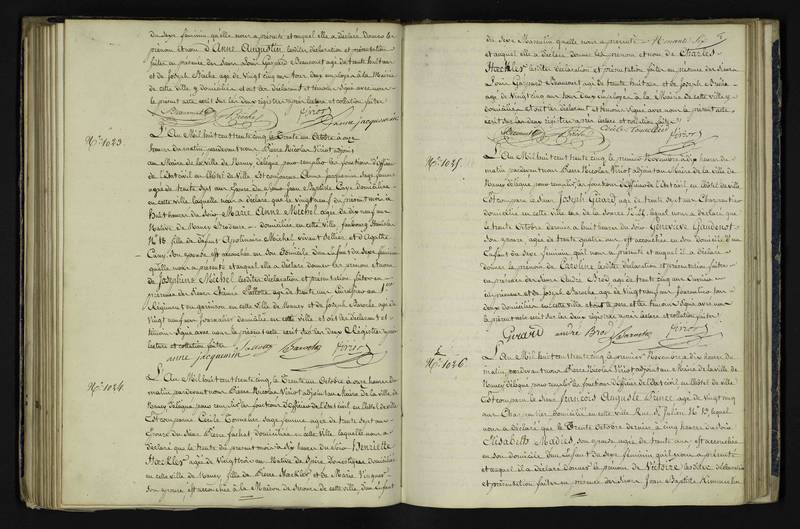 du Sexe féminin qu'elle nous a présenté et auquel elle a déclaré donner les
prénom et nom d'Anne Augustin lesdites déclaration et présentation
faites en présence des Sieurs Louis Gaspard Beaucourt agé de trente huit ans
et de Joseph Barke agé de Vingt cinq ans tous deux employés à la Mairie
de cette ville y domiciliés et ont les déclarant et témoins signé avec nous
le présent acte écrit sur les deux régistres après lecture et collation faites
anne jacquemin
N.° 1023.
L'An Mil huit cent trente cinq le Trente un Octobre à onze
heures du matin pardevant nous Pierre Nicolas Viriot adjoint
au Maire de la Ville de Nancy délégué pour remplir les fonctions d'officier
de l'état civil en l'hôtel de Ville Est comparue Anne Jacquemin Sage femme
agée de trente
en cette ville laquelle nous a déclaré que le vingt neuf du présent mois à
huit heures du Soir Marie Anne Michel agée de dix neuf ans
Native de Nancy Brodeuse domiciliée en cette Ville faubourg Stanislas
N.° 18 fille de défunt Apolinaire Michel vivant Sellier et d'Agathe
Cuny Son épouse est accouchée en Son domicile d'un Enfant du Sexe féminin
qu'elle nous a présenté et auquel elle a déclaré donner les prénom et nom
de Joséphine Michel lesdites déclaration et présentation faites en
présence des Sieurs
Régiment en garnison en cette ville de Nancy et de Joseph Barvelé agé de
vingt neuf ans Journalier domicilié en cette ville et ont les déclarant et
témoins Signé avec nous le présent acte écrit sur les deux Régistres après
lecture et collation faites
anne jacquemin Barvele Viriot
N.° 1024.
L'An Mil huit cent trente cinq, le Trente un Octobre à onze heures du
matin pardevant nous Pierre Nicolas Viriot adjoint au Maire de la ville de
Nancy délégué pour remplir les fonctions d'Officier de l'état civil en l'hôtel de ville
Est comparue Cécile Tonnelier Sage femme agée de trente sept ans
Epouse du Sieur Pierre domiciliée en cette ville, laquelle nous a
déclaré que le trente du présent mois à Six heures du Soir Henriette
Hackler agée de Vingt trois ans Native de Spire Domestique domiciliée
en cette ville de Nancy fille de Pierre Hackler et de Marie
Son épouse, est accouchée à la Maison de Secours de cette ville, d'un Enfant
du Sexe Masculin qu'elle nous a présenté
et auquel elle a déclaré donner les prénom et nom de Charles
Hackler lesdites déclaration et présentation faites en présence des Sieurs
Louis Gaspard Beaucourt agé de trente huit ans et de Joseph Barke
agé de Vingt cinq ans tous deux Employés à la Mairie de cette Ville y
domiciliés et ont les déclarant et témoins Signé avec nous le présent acte
écrit sur les deux régistres après lecture et collation faites
Cécile Tonnelier Viriot
N.° 1025.
L'An Mil huit cent trente cinq le premier Novembre à dix heures du
matin pardevant nous Pierre Nicolas Viriot adjoint au Maire de la ville de
Nancy délégué pour remplir les fonctions d'Officier de l'état civil en l'hôtel de ville
Est comparu le Sieur Joseph Girard agé de trente sept ans Charpentier
domicilié en cette ville rue de la Source N.° lequel nous a déclaré que
le trente Octobre dernier à huit heures du Soir Geneviève Gaudenot
Son épouse, agée de trente quatre ans est accouchée en Son domicile d'un
Enfant du Sexe féminin qu'il nous a présenté et auquel il a déclaré
donner le prénom de Caroline lesdites déclaration et présentation faites
en présence des Sieurs André Bro agé de trente cinq ans
et de Joseph Barvelé agé de Vingt neuf ans Journalier tous
deux domiciliés en cette ville et ont le père et les témoins Signé avec nous
le présent acte écrit sur les deux régistres après lecture et collation faites
Girard andré Bro Barvele Viriot
N.° 1026.
L'An Mil huit cent trente cinq le premier Novembre à dix heures du
matin, pardevant nous Pierre Nicolas Viriot adjoint au Maire de la ville de
Nancy délégué pour remplir les fonctions d'Officier de l'état civil en l'hôtel de ville
Est comparu le Sieur François Auguste agé de vingt cinq
ans Charpentier domicilié en cette Ville Rue St. Julien N.° 13, lequel
nous a déclaré que le Trente Octobre dernier à cinq heures du Soir
Elisabeth Son épouse agée de trente ans est accouchée
en Son domicile d'un Enfant du Sexe féminin qu'il nous a présenté
et auquel il a déclaré donner le prénom de Victoire lesdites déclaration
et présentation faites en présence des Sieurs Jean Baptiste